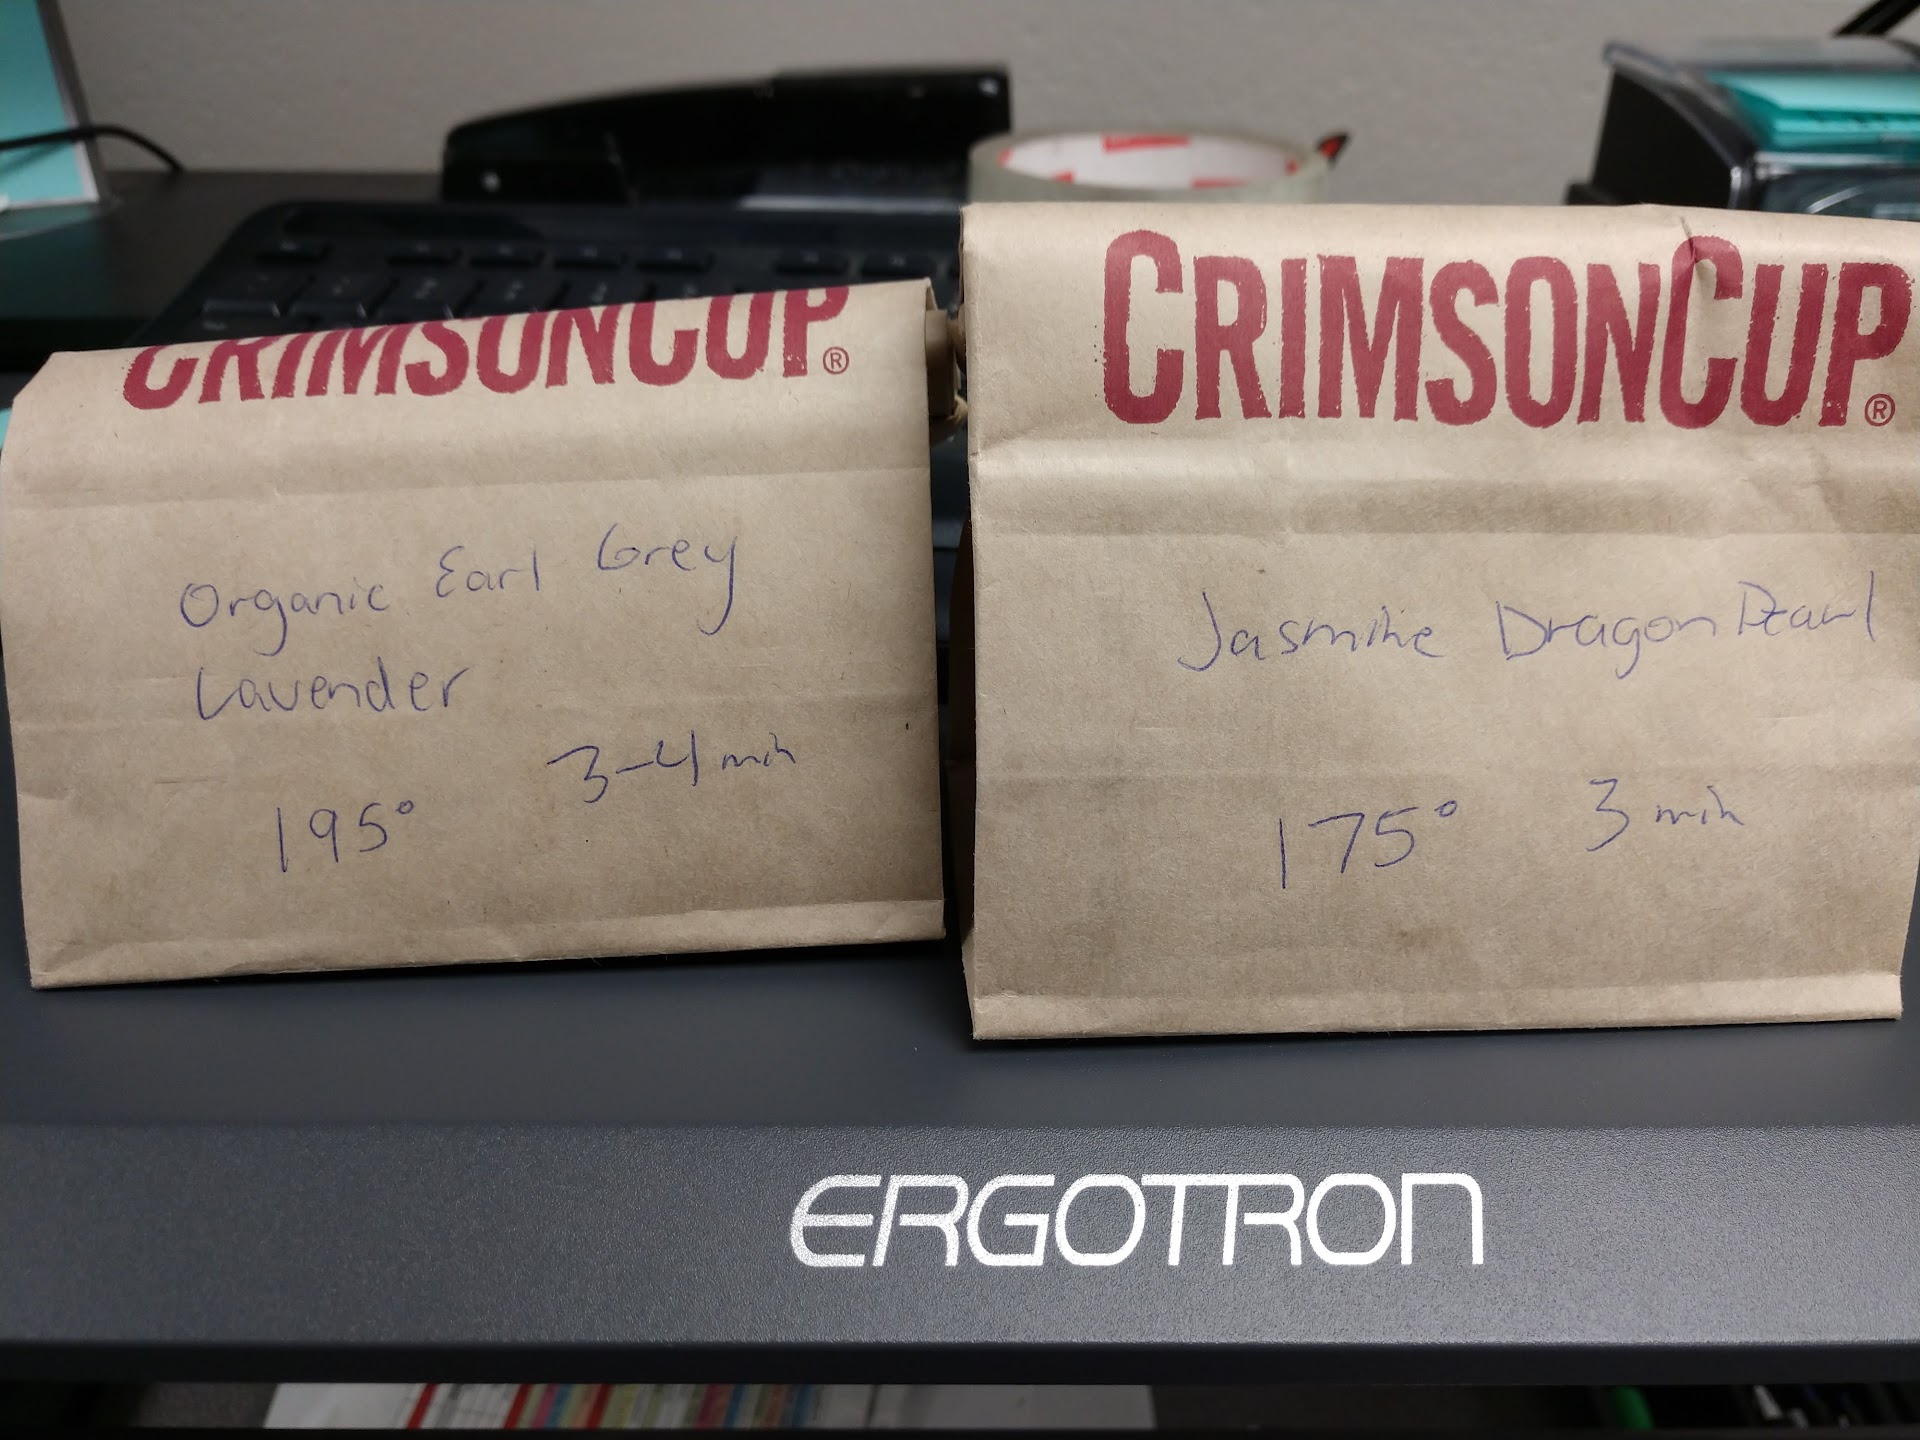 CRIMSONCUP®
Organic Earl Grey
Lavender
3-4 min
195°
CRIMSONCUP®
Jasmine Dragon Pearl
175° 3 min
ERGOTRON